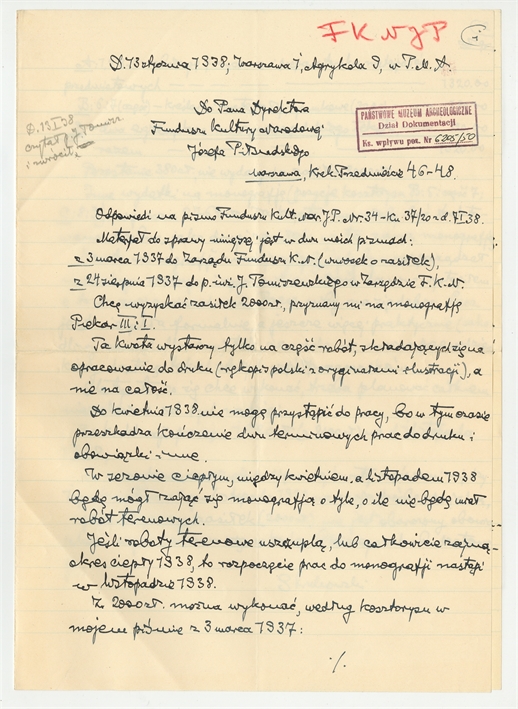 FKNJP
1
D. 13 stycznia 1938, Warszawa 1, Agrykola 9, w P.M.A.
D. 13 I 38
czytał J. Tomisz
i zwrócił
Do Pana Dyrektora
Funduszu Kultury Narodowej
Józefa Piłsudskiego
Warszawa, Krak. Przedmieście 46-48.
PAŃSTWOWE MUZEUM ARCHEOLOGICZNE
Dział Dokumentacji
Ks. wpływu poz. Nr 6205/50
Odpowiedź na pismo Funduszu Kult. Nar. J.P. Nr. 34-Kn 37/20 z d. 7 I 38.
Materjał do sprawy niniejszej jest w dwu moich pismach:
z 3 marca 1937 do Zarządu Funduszu K.N. (wniosek o zasiłek),
z 24 sierpnia 1937 do p. inż. J. Tomiszewskiego w Zarządzie F.K.N.
Chcę wyzyskać zasiłek 2000 zł., przyznany mi na monografję
Piekar III i I.
Ta kwota wystarczy tylko na część robót, składających się na
opracowanie do druku (rękopis polski z oryginałami ilustracji), a
nie na całość.
Do kwietnia 1938 nie mogę przystąpić do pracy, bo w tym czasie
przeszkadza kończenie dwu terminowych prac do druku i
obowiązki inne.
W sezonie ciepłym, między kwietniem a listopadem 1938
będę mógł zająć się monografją o tyle, o ile nie będę miał
robót terenowych.
Jeśli roboty terenowe uszczuplą, lub całkowicie zajmą
okres ciepły 1938, to rozpoczęcie prac do monografji nastąpi
w listopadzie 1938.
Za 2000 zł. można wykonać, według kosztorysu w
mojem piśmie z 3 marca 1937:
./.